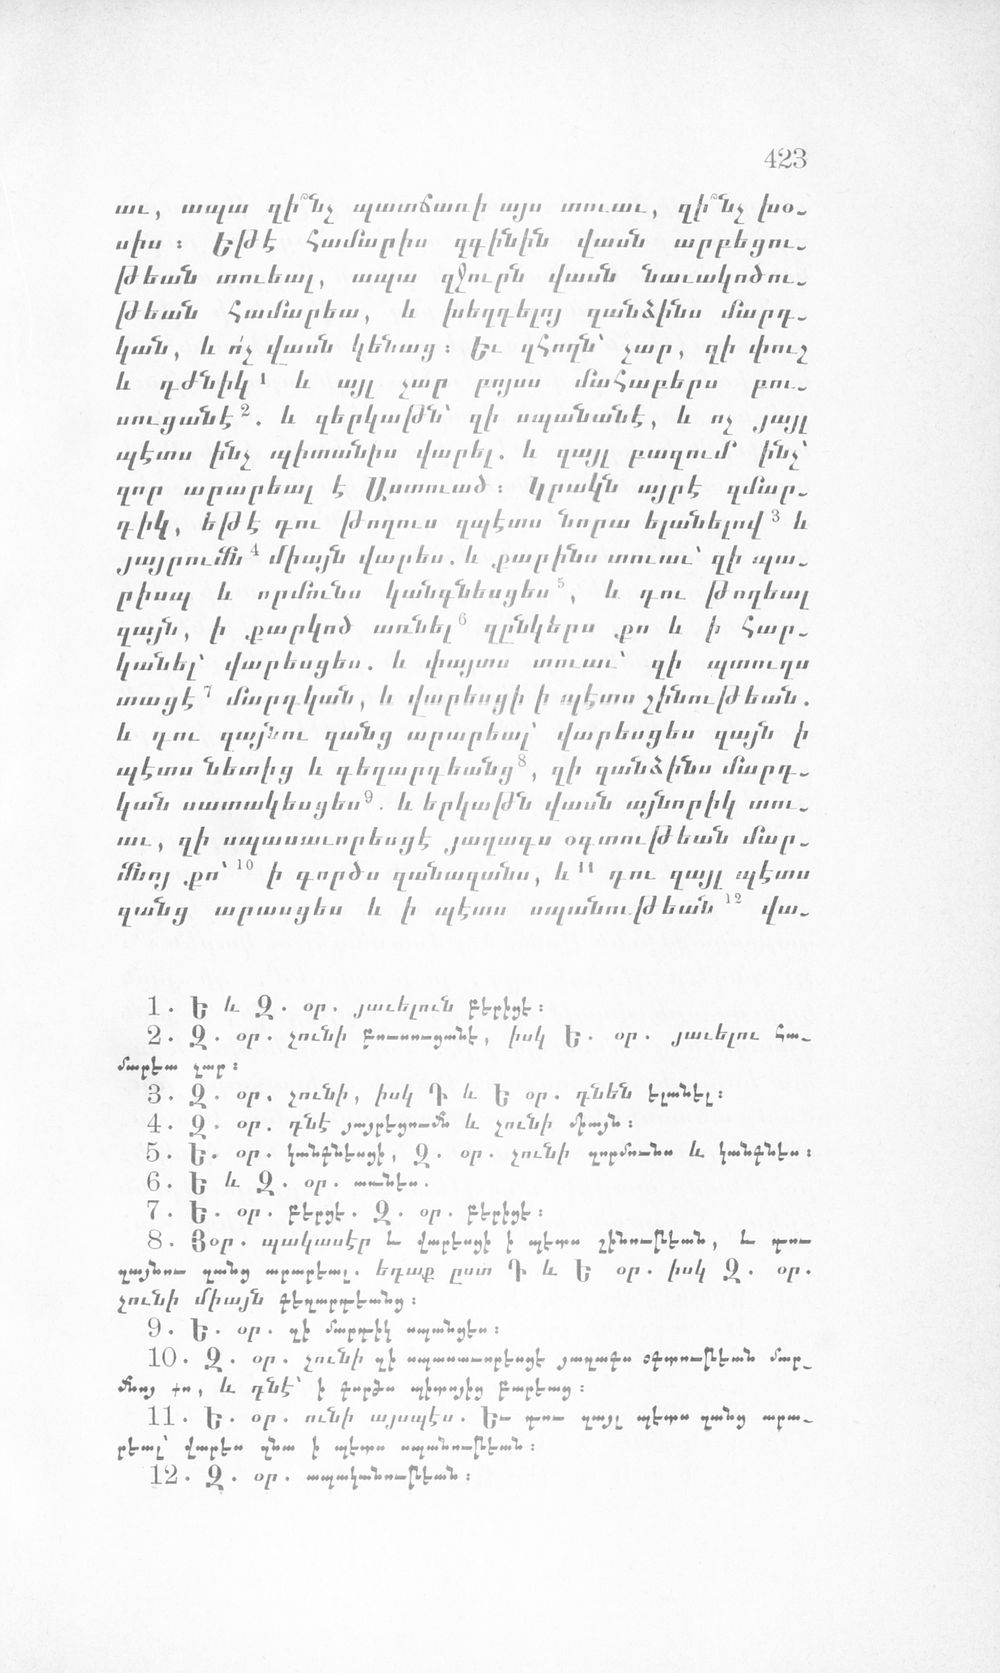 423
աւ, ապա զի՞նչ պատճառի այս տուաւ, զի՞նչ խօ֊
սիս : Եթէ համարիս զգինին վասն արբեցու֊
թեան տուեալ, ապա զջուրն վասն նաւակոծու֊
թեան համարեա, և խեղդելոյ զանձինս մարդ֊
կան, և ո՛չ վասն կենաց : Եւ զհողն՝ չար, զի փուշ
և դժնիկ 1 և այլ չար բոյսս մահաբերս բու֊
սուցանէ 2. և զերկաթն՝ զի սպանանէ, և ոչ յայլ
պէտս ինչ պիտանիս վարել. և զայլ բազում ինչ՝
զոր արարեալ է Աստուած : Կրակն այրէ զմար֊
դիկ, եթէ դու թողուս զպէտս նորա ելանելով 3 և
յայրումն 4 միայն վարես. և քարինս տուաւ՝ զի պա֊
րիսպ և որմունս կանգնեսցես 5, և դու թողեալ
զայն, ի քարկոծ առնել 6 զընկերս քո և ի հար֊
կանել՝ վարեսցես. և փայտս տուաւ՝ զի պտուղս
տացէ 7 մարդկան, և վարեսցի ի պէտս շինութեան.
և դու զայնու զանց արարեալ՝ վարեսցես զայն ի
պէտս նետից և գեղարդեանց 8, զի զանձինս մարդ֊
կան սատակեսցես 9. և երկաթն վասն այնորիկ տու֊
աւ, զի սպասաւորեսցէ յաղագս օգտութեան մար֊
մնոյ քո՝ 10 ի գործս զանազանս, և 11 դու զայլ պէտս
զանց արասցես և ի պէտս սպանութեան 12 վա֊
1. Ե և Զ. օր. յաւելուն բերիցէ :
2. Զ. օր. չունի բուսուցանէ, իսկ Ե. օր. յաւելու հա֊
մարեա չար :
3. Զ. օր. չունի, իսկ Դ և Ե օր. դնեն ելանել :
4. Զ. օր. դնէ յայրեցումն և չունի միայն :
5. Ե. օր. կանգնեսցի, Զ. օր. չունի զորմունս և կանգնես :
6. Ե և Զ. օր. առնես.
7. Ե. օր. բերցէ. Զ. օր. բերիցէ :
8. Յօր. պակասէր և վարեսցի ի պէտս շինութեան, և դու
զայնու զանց արարեալ. եդաք ըստ Դ և Ե օր. իսկ Զ. օր.
չունի միայն գեղարդեանց :
9. Ե. օր. զի մարդիկ սպանցես :
10. Զ. օր. չունի զի սպասաւորեսցէ յաղագս օգտութեան մար֊
մնոյ քո, և դնէ՝ ի գործս պիտոյից բարեաց :
11. Ե. օր. ունի այսպէս. Եւ դու զայլ պէտս զանց արա֊
րեալ՝ վարես զնա ի պէտս սպանութեան :
12. Զ. օր. ապականութեան :